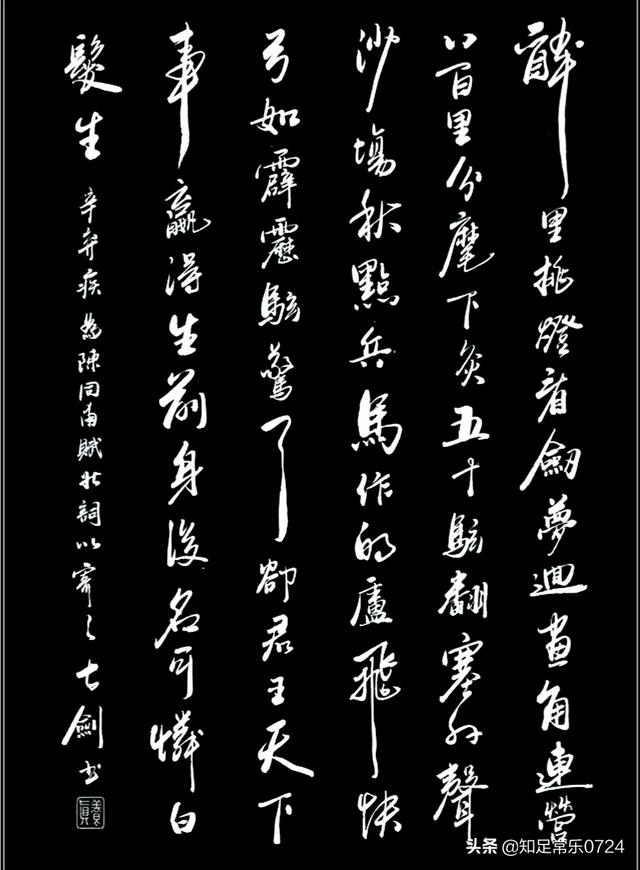 醉里挑燈看劍夢迴畫角連營
八百里分麾下炙五十絃翻塞外聲
沙場秋點兵馬作的盧飛快
弓如霹靂絃驚了卻君王天下
事贏得生前身後名可憐白
髮生 辛弃疾為陳同甫賦壯詞以寄之 劍书
头条 @知足常乐0724